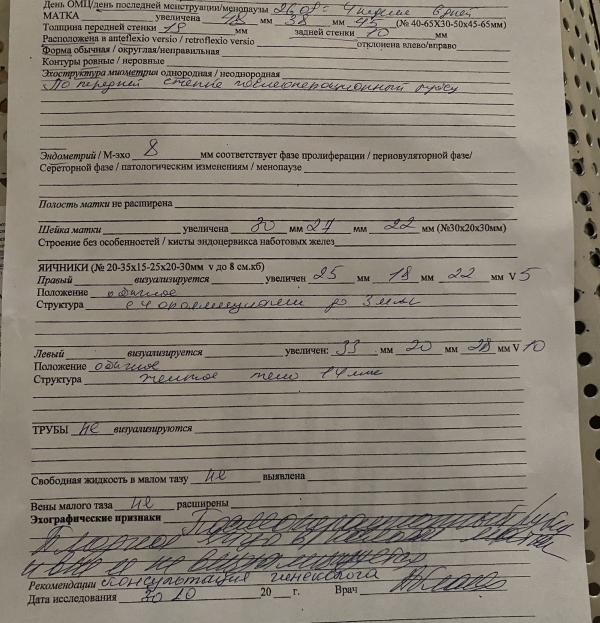 День ОМЦ/день последней менструации/менопаузы 26.08 = 4 недели 6 дней
МАТКА увеличена 48 мм 38 мм 45 (№ 40-65X30-50x45-65мм)
Толщина передней стенки 19 мм задней стенки 10 мм
Расположена в anteflexio versio / retroflexio versio отклонена влево/вправо
Форма обычная / округлая/неправильная
Контуры ровные / неровные
Эхоструктура миометрия однородная / неоднородная
По передней стенке послеоперационный рубец
Эндометрий / М-эхо 8 мм соответствует фазе пролиферации / периовуляторной фазе/
Сереторной фазе / патологическим изменениям / менопаузе
Полость матки не расширена
Шейка матки увеличена 30 мм 27 мм 22 мм (№30х20х30мм)
Строение без особенностей / кисты эндоцервикса наботовых желез
ЯИЧНИКИ (№ 20-35х15-25х20-30мм v до 8 см.кб)
Правый визуализируется увеличен 25 мм 18 мм 22 мм V 5
Положение обычное
Структура с фолликулами до 3 мм
Левый визуализируется увеличен: 33 мм 20 мм 28 мм V 10
Положение обычное
Структура желтое тело 14 мм
ТРУБЫ не визуализируются
Свободная жидкость в малом тазу не выявлена
Вены малого таза не расширены
Эхографические признаки Послеоперационный рубец
Плодное яйцо в полости матки
и вне ее не визуализируется
Рекомендации консультация гинеколога
Дата исследования 30 20 20 г. Врач